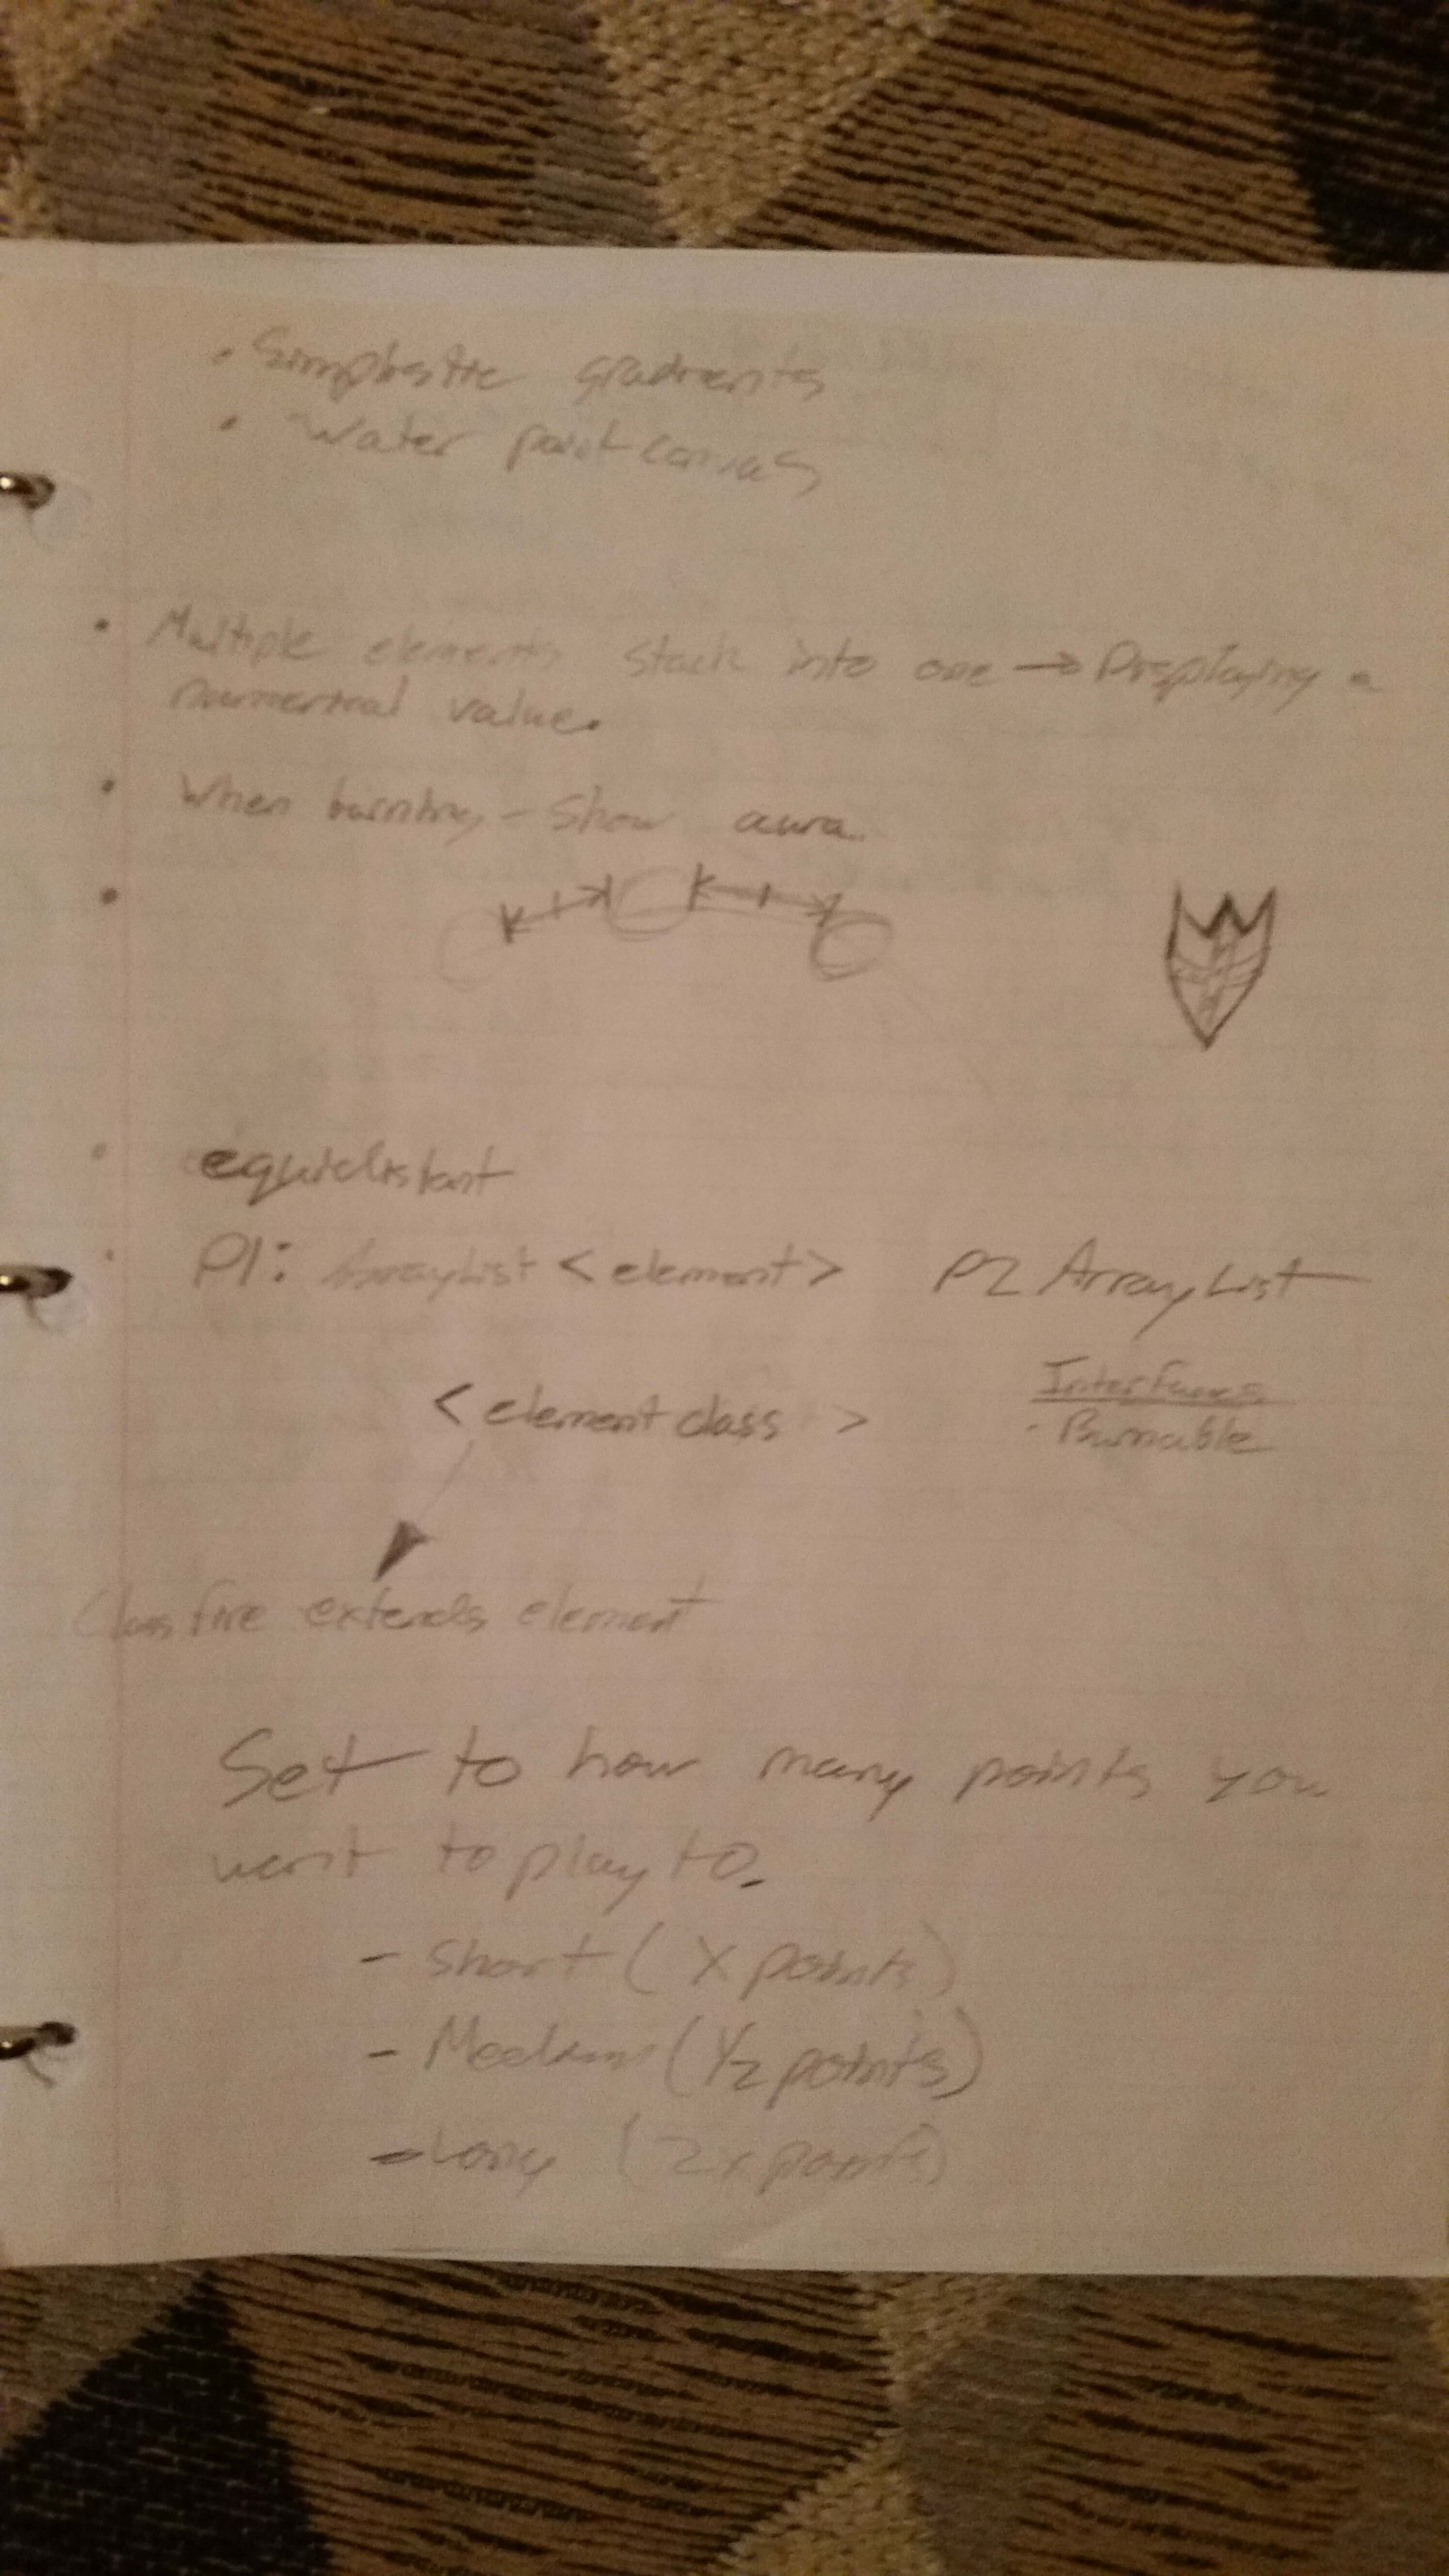 • Simplistic gradients
• Water paint canvas
• Multiple elements stack into one → Displaying a
numerical value.
• When burning - Show aura
•
• equidistant
• P1: ArrayList <element> P2 ArrayList
<element class >
Interfaces
- Burnable
Class fire extends element
Set to how many points you
want to play to.
- Short ( X points)
- Medium (1/2 points)
- Long (2x points)